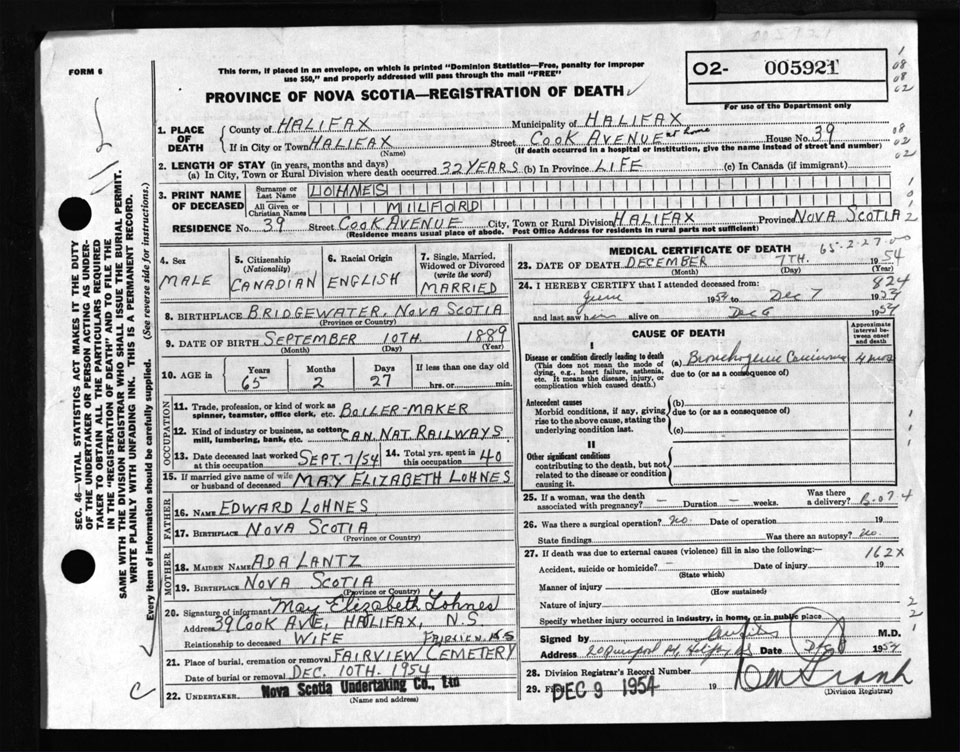 005921
FORM 6
This form, if placed in an envelope, on which is printed "Dominion Statistics—Free, penalty for improper
use $50," and properly addressed will pass through the mail "FREE"
O2- 005921
For use of the Department only
PROVINCE OF NOVA SCOTIA—REGISTRATION OF DEATH
1. PLACE OF DEATH
County of HALIFAX Municipality of HALIFAX
If in City or Town HALIFAX Street COOK AVENUE at home House No. 39
(Name) (If death occurred in a hospital or institution, give the name instead of street and number)
2. LENGTH OF STAY (in years, months and days)
(a) In City, Town or Rural Division where death occurred 32 YEARS (b) In Province LIFE (c) In Canada (if immigrant)
3. PRINT NAME OF DECEASED
Surname or Last Name LOHNES
All Given or Christian Names MILFORD
RESIDENCE No. 39 Street COOK AVENUE City, Town or Rural Division HALIFAX Province NOVA SCOTIA
(Residence means usual place of abode. Post Office Address for residents in rural parts not sufficient)
4. Sex
MALE
5. Citizenship
(Nationality)
CANADIAN
6. Racial Origin
ENGLISH
7. Single, Married,
Widowed or Divorced
(write the word)
MARRIED
8. BIRTHPLACE BRIDGEWATER, NOVA SCOTIA
(Province or Country)
9. DATE OF BIRTH SEPTEMBER 10TH 1889
(Month) (Day) (Year)
10. AGE in
Years Months Days If less than one day old
65 2 27 hrs. or min.
OCCUPATION
11. Trade, profession, or kind of work as
spinner, teamster, office clerk, etc. BOILER-MAKER
12. Kind of industry or business, as cotton
mill, lumbering, bank, etc. CAN. NAT. RAILWAYS
13. Date deceased last worked
at this occupation SEPT. 7/54
14. Total yrs. spent in
this occupation 40
15. If married give name of wife
or husband of deceased MAY ELIZABETH LOHNES
FATHER
16. Name EDWARD LOHNES
17. Birthplace NOVA SCOTIA
(Province or Country)
MOTHER
18. Maiden Name ADA LANTZ
19. Birthplace NOVA SCOTIA
(Province or Country)
20. Signature of informant May Elizabeth Lohnes
Address 39 COOK AVE, HALIFAX, N.S.
Relationship to deceased WIFE
Fairview N.S
21. Place of burial, cremation or removal FAIRVIEW CEMETERY
Date of burial or removal DEC. 10TH. 1954
22. UNDERTAKER Nova Scotia Undertaking Co., Ltd
(Name and address)
MEDICAL CERTIFICATE OF DEATH
65-2-27
23. DATE OF DEATH DECEMBER 7TH. 1954
(Month) (Day) (Year)
824
24. I HEREBY CERTIFY that I attended deceased from:
June 1954 to Dec 7 1954
and last saw him alive on Dec 6 1954
CAUSE OF DEATH
Approximate
interval between
onset
and death
I
Disease or condition directly leading to death
(This does not mean the mode of
dying, e.g., heart failure, asthenia,
etc. It means the disease, injury, or
complication which caused death.)
(a) Bronchogenic Carcinoma
due to (or as a consequence of)
Antecedent causes
Morbid conditions, if any, giving
rise to the above cause, stating the
underlying condition last.
(b)
due to (or as a consequence of)
(c)
II
Other significant conditions
contributing to the death, but not
related to the disease or condition
causing it.
25. If a woman, was the death
associated with pregnancy? — Duration — weeks. Was there
a delivery?
26. Was there a surgical operation? No. Date of operation 19
State findings Was there an autopsy? No.
27. If death was due to external causes (violence) fill in also the following:— 162X
Accident, suicide or homicide? — Date of injury 19
(State which)
Manner of injury
(How sustained)
Nature of injury
Specify whether injury occurred in industry, in home, or in public place
Signed by M.D.
Address Date 1954
28. Division Registrar's Record Number
29. DEC 9 1954 19
(Division Registrar)
SEC. 46—VITAL STATISTICS ACT MAKES IT THE DUTY
OF THE UNDERTAKER OR PERSON ACTING AS UNDER-
TAKER TO OBTAIN ALL THE PARTICULARS REQUIRED
IN THE "REGISTRATION OF DEATH" AND TO FILE THE
SAME WITH THE DIVISION REGISTRAR WHO SHALL ISSUE THE BURIAL PERMIT.
WRITE PLAINLY WITH UNFADING INK. THIS IS A PERMANENT RECORD.
Every item of information should be carefully supplied. (See reverse side for instructions.)